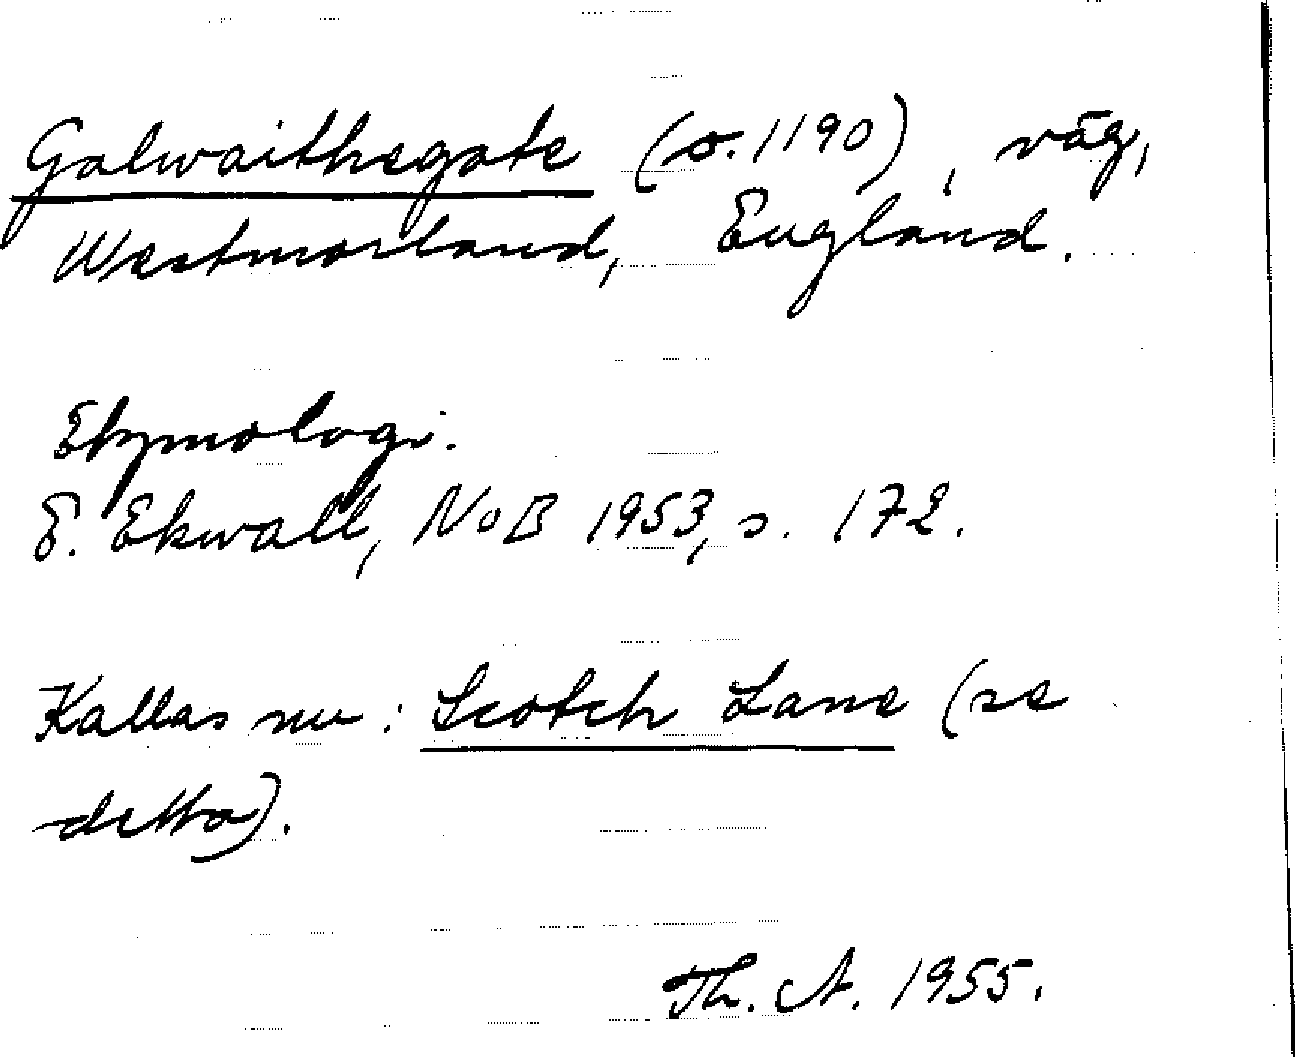 Galwaithegate (o. 1190), väg,
Westmorland, England.
Etymologi.
E. Ekwall, NoB 1953, s. 172.
Kallas nu: Scotch Lane (se
detta).
Th. A. 1955.